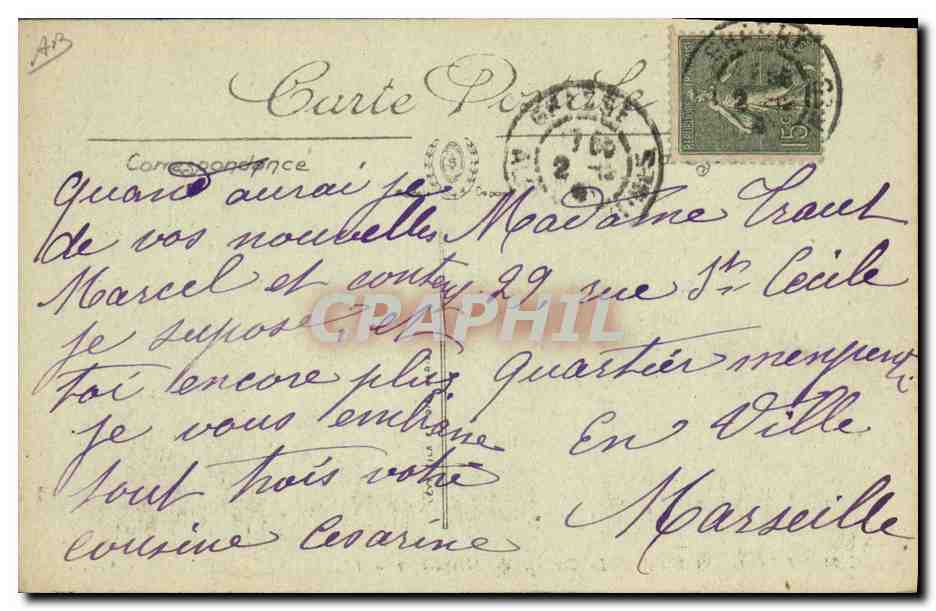 AB
Carte Postale
Correspondance
Quand aurai je
de vos nouvelles
Marcel et content
je supose, et
toi encore plus
je vous embrase
tout trois votre
cousine Cesarine
Madame Traut
29 rue Ste Cecile
quartier menpenti
En Ville
Marseille
BREZHE
7 50
2
15c
CPAPHIL